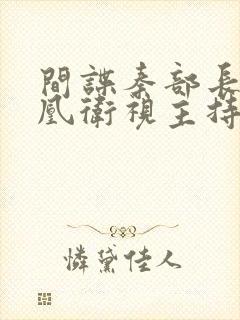 間諜秦部長
凰衛視主持
憐黛佳人